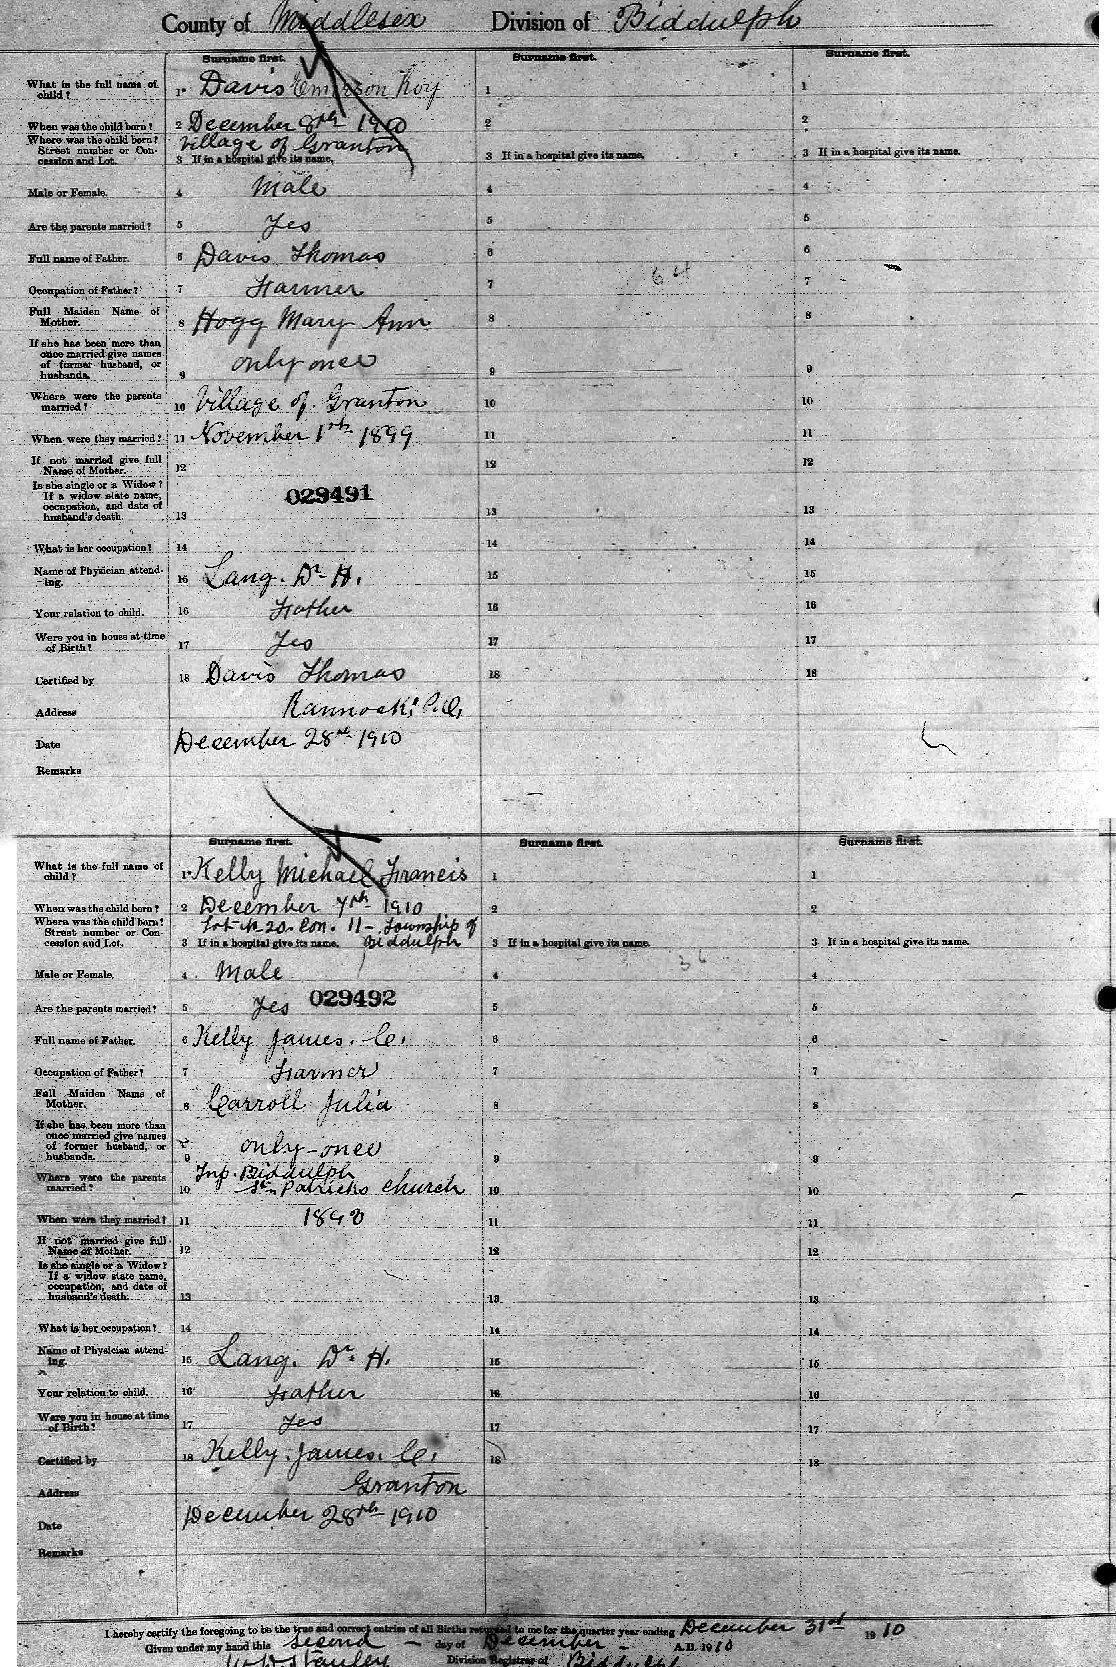 County of Middlesex Division of Biddulph
Surname first. Surname first. Surname first.
What is the full name of child? 1 Davis Emerson Roy 1 1
When was the child born? 2 December 8th 1910 2 2
Where was the child born? Street number or Concession and Lot. Village of Granton
3 If in a hospital give its name. 3 If in a hospital give its name. 3 If in a hospital give its name.
Male or Female. 4 Male 4 4
Are the parents married? 5 Yes 5 5
Full name of Father. 6 Davis Thomas 6 6
64
Occupation of Father? 7 Farmer 7 7
Full Maiden Name of Mother. 8 Hogg Mary Ann 8 8
If she has been more than once married give names of former husband, or husbands. 9 only once 9 9
Where were the parents married? 10 Village of Granton 10 10
When were they married? 11 November 1st 1899 11 11
If not married give full Name of Mother. 12 12 12
Is she single or a Widow? If a widow state name, occupation, and date of husband's death. 13 029491 13 13
What is her occupation? 14 14 14
Name of Physician attend-ing. 15 Lang. Dr H. 15 15
Your relation to child. 16 Father 16 16
Were you in house at time of Birth? 17 Yes 17 17
Certified by 18 Davis Thomas 18 18
Address P.O.
Date December 28th 1910
Remarks
Surname first. Surname first. Surname first.
What is the full name of child? 1 Kelly Michael Francis 1 1
When was the child born? 2 December 7th 1910 2 2
Where was the child born? Street number or Concession and Lot. Lot 20. Con. 11 - Township of
3 If in a hospital give its name. Biddulph 3 If in a hospital give its name. 3 If in a hospital give its name.
36
Male or Female. 4 Male 4 4
Are the parents married? 5 Yes 029492 5 5
Full name of Father. 6 Kelly James. C. 6 6
Occupation of Father? 7 Farmer 7 7
Full Maiden Name of Mother. 8 Carroll Julia 8 8
If she has been more than once married give names of former husband, or husbands. 9 only-once 9 9
Where were the parents married? Tnp. Biddulph
10 St. Patricks Church 10 10
When were they married? 11 11 11
If not married give full Name of Mother. 12 12 12
Is she single or a Widow? If a widow state name, occupation, and date of husband's death. 13 13 13
What is her occupation? 14 14 14
Name of Physician attend-ing. 15 Lang. Dr. H. 15 15
Your relation to child. 16 Father 16 16
Were you in house at time of Birth? 17 Yes 17 17
Certified by 18 Kelly. James. C. 18 18
Address Granton
Date December 28th 1910
Remarks
I hereby certify the foregoing to be the true and correct entries of all Births returned to me for the quarter year ending December 31st 1910
Given under my hand this second day of December A.D. 1910
Stanley Division Registrar of Biddulph